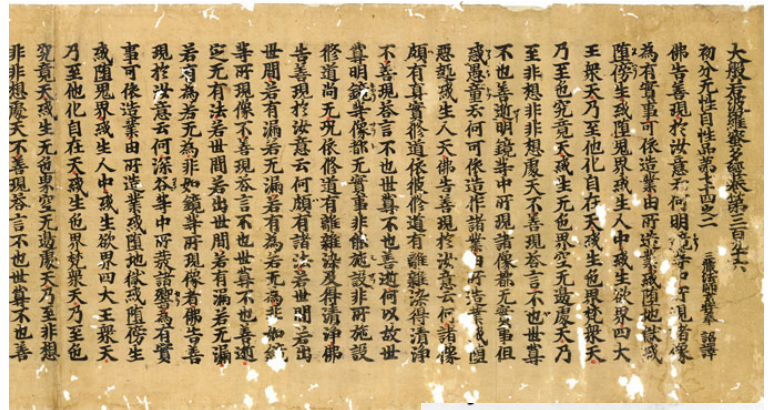 大般若波羅蜜多經卷第三百九十六
初分无性自性品第七十四之二 三藏法師玄奘奉 詔譯
佛告善現於汝意云何明鏡等中所現諸像
為有實事可依造業由所造業或墮地獄或
墮傍生或墮鬼界或生人中或生欲界四大
王衆天乃至他化自在天或生色界梵衆天
乃至色究竟天或生无色界空无邊處天乃
至非想非非想處天不善現荅言不也世尊
不也善逝明鏡等中所現諸像都无實事但
惑愚童云何可依造作諸業由所造業或墮
惡趣或生人天佛告善現於汝意云何諸像
頗有真實修道依彼修道有離雜染得清淨
不善現荅言不也世尊不也善逝何以故世
尊明鏡等像都无實事非能施設非所施設
修道尚无況依修道有離雜染及得清淨佛
告善現於汝意云何頗有諸法若世間若出
世間若有漏若无漏若有為若无為非如鏡
等所現像不善現荅言不也世尊不也善逝
定无有法若世間若出世間若有漏若无漏
若有為若无為非如鏡等所現像者佛告善
現於汝意云何深谷等中所發諸響為有實
事可依造業由所造業或墮地獄或墮傍生
或墮鬼界或生人中或生欲界四大王衆天
乃至他化自在天或生色界梵衆天乃至色
究竟天或生无色界空无邊處天乃至非想
非非想處天不善現荅言不也世尊不也善